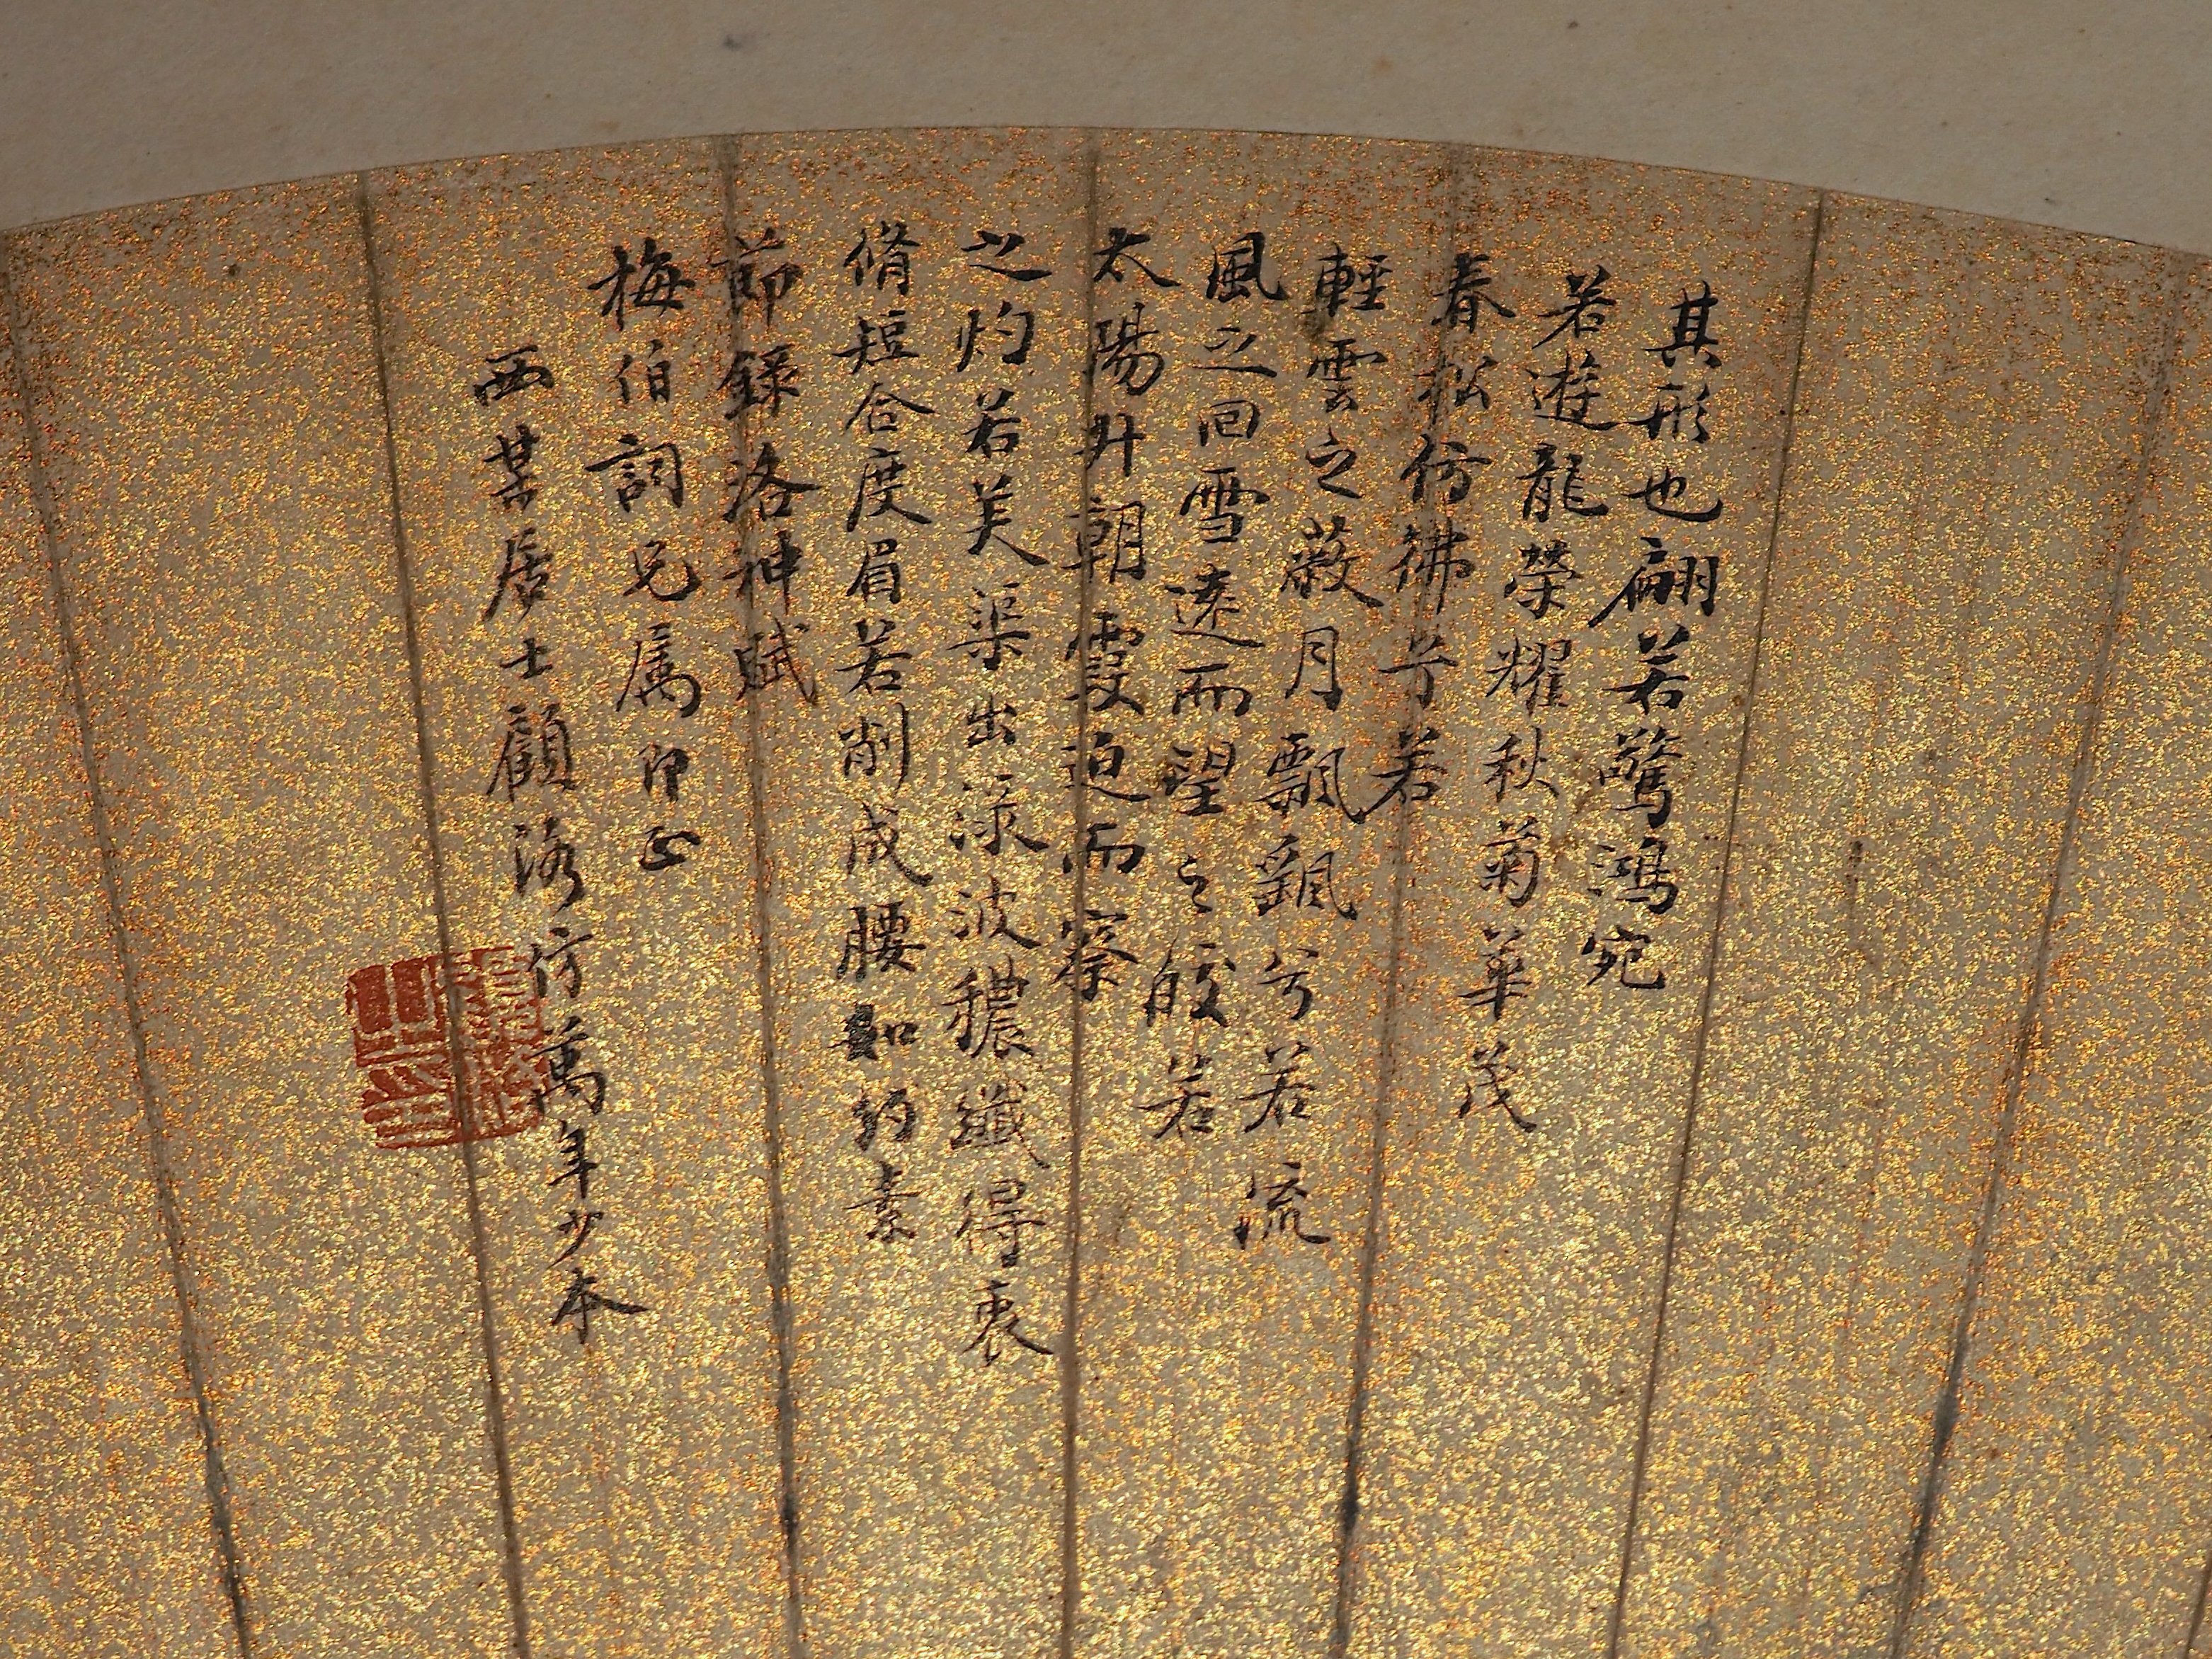 其形也翩若驚鴻宛
若遊龍榮耀秋菊華茂
春松仿彿兮若
輕雲之蔽月飄颻兮若流
風之回雪遠而望之皎若
太陽升朝霞迫而察
之灼若芙渠出淥波穠纖得衷
脩短合度眉若削成腰如約素
節錄洛神賦
梅伯詞兄属即正
西某居士顧洛仿萬年少本